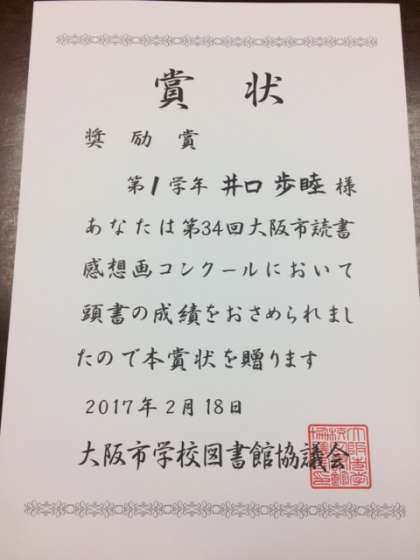 賞状
奨励賞
第1学年 井口 歩睦 様
あなたは第34回大阪市読書
感想画コンクールにおいて
頭書の成績をおさめられまし
たので本賞状を贈ります
2017年2月18日
大阪市学校図書館協議会